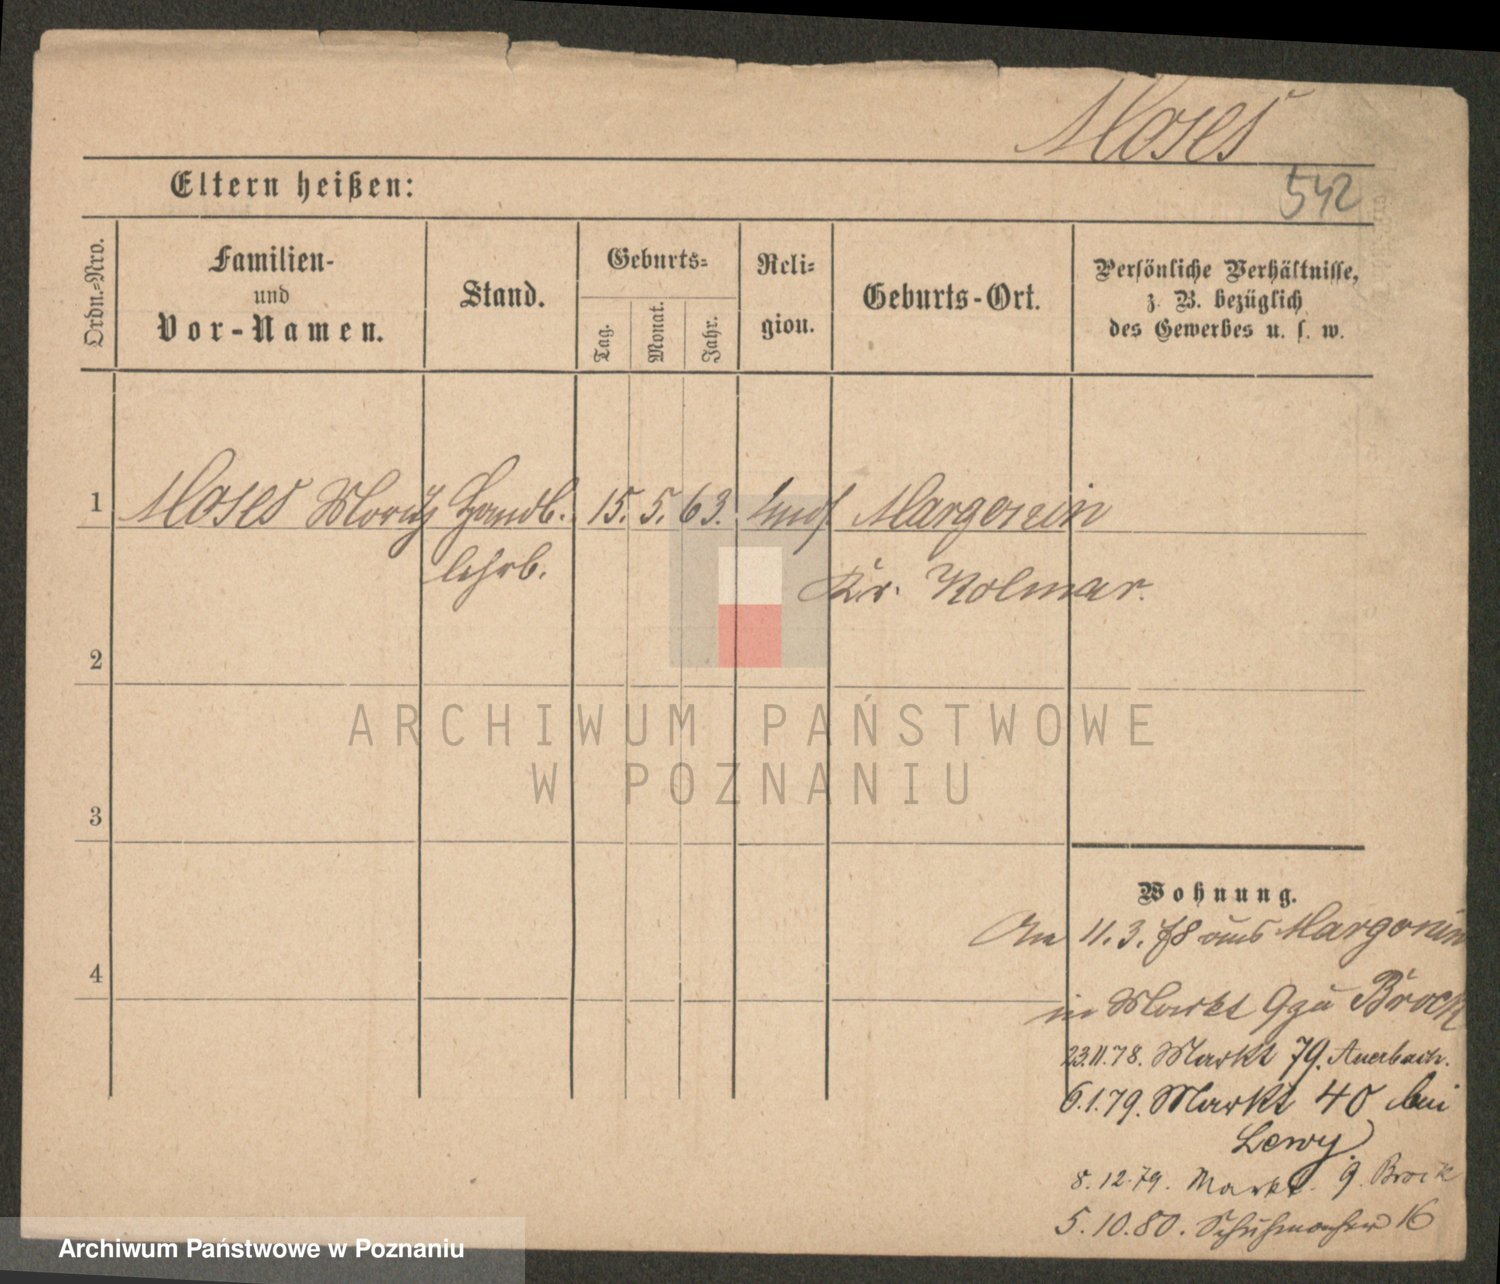 Moses
542
Eltern heißen:
Ordn.-Nro.
Familien-
und
Vor-Namen.
Stand.
Geburts-
Tag.
Monat.
Jahr.
Reli-
gion.
Geburts-Ort.
Persönliche Verhältnisse,
z. B. bezüglich
des Gewerbes u. s. w.
1 Moses Moritz Handl. 15. 5. 63. Margonin
lehrb. Kr. Kolmar.
2
ARCHIWUM PAŃSTWOWE
W POZNANIU
3
Wohnung.
11. 3. 78 aus Margonin
4
in Markt 9 zu Brock
23.11.78. Markt 79. Auerbach.
6.1.79. Markt 40 bei
Lewy.
8.12.79. Markt. 9. Brock
5.10.80. Schuhmacher 16
Archiwum Państwowe w Poznaniu